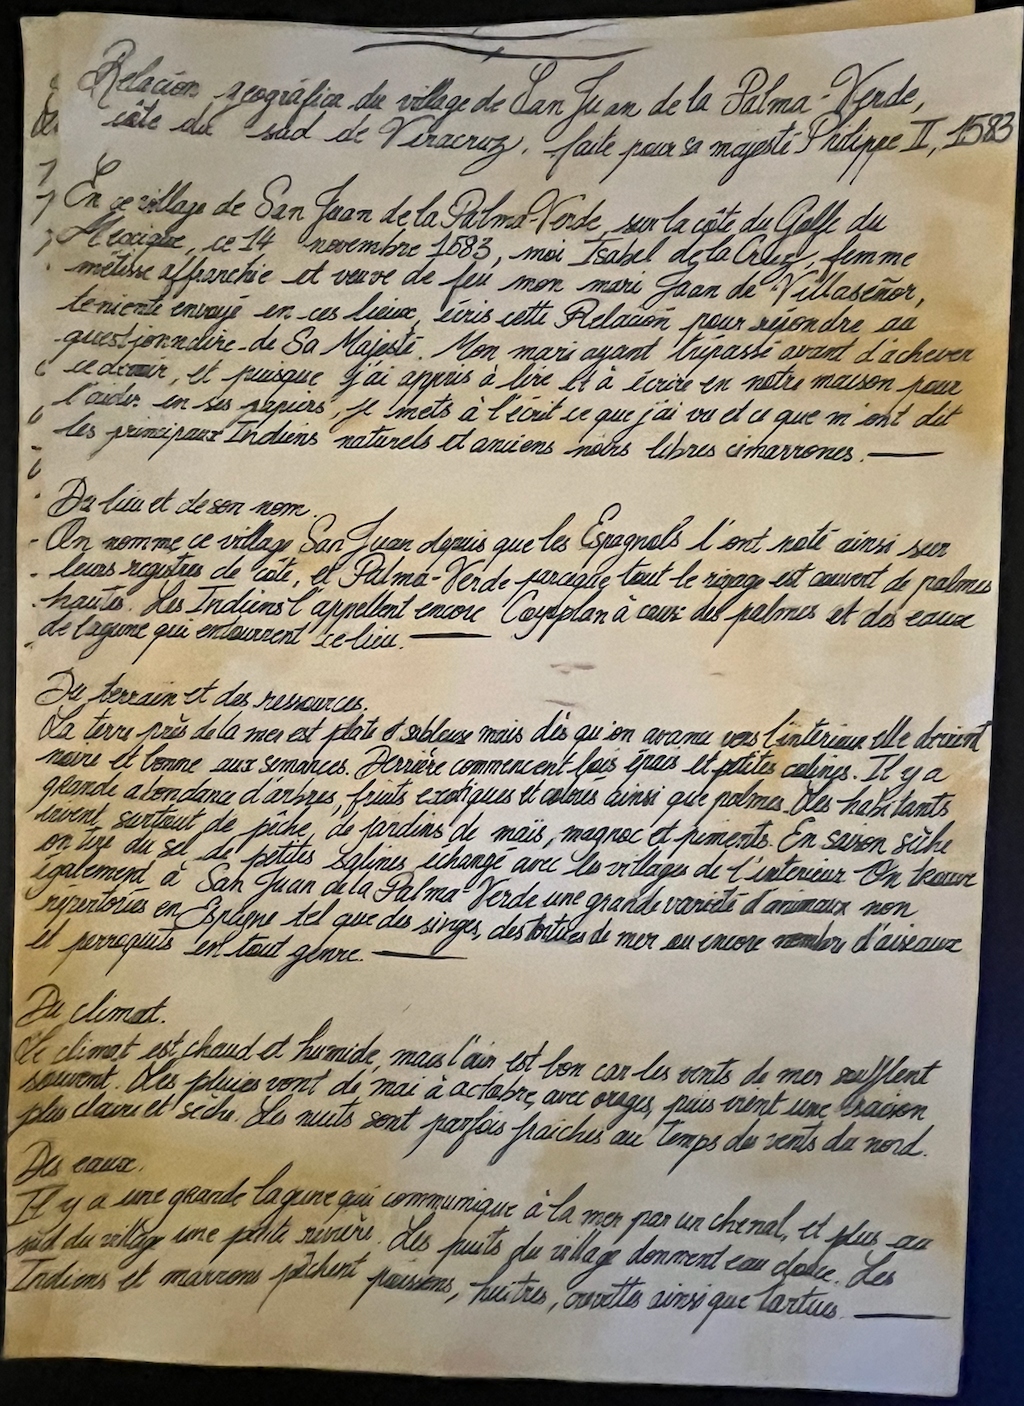 Relación geográfica du village de San Juan de la Palma-Verde,
côte du sud de Veracruz, faite pour sa majesté Philippe II, 1583
En ce village de San Juan de la Palma-Verde, sur la côte du Golfe du
Mexique, ce 14 novembre 1583, moi Isabel de la Cruz, femme
métisse affranchie et veuve de feu mon mari Juan de Villaseñor,
teniente envoyé en ces lieux, écris cette Relación pour répondre au
questionnaire de Sa Majesté. Mon mari ayant trépassé avant d'achever
ce devoir, et puisque j'ai appris à lire et à écrire en notre maison pour
l'aider en ses papiers, je mets à l'écrit ce que j'ai vu et ce que m'ont dit
les principaux Indiens naturels et anciens noirs libres cimarrones.
Du lieu et de son nom.
On nomme ce village San Juan depuis que les Espagnols l'ont noté ainsi sur
leurs registres de côte, et Palma-Verde parceque tout le rivage est couvert de palmes
hautes. Les Indiens l'appellent encore à cause des palmes et des eaux
de lagune qui entourrent ce lieu.
Du terrain et des ressources.
La terre près de la mer est plate et sableuse mais dès qu'on avance vers l'intérieur elle devient
noire et bonne aux semances. Derrière commencent bois épais et petites colines. Il y a
grande abondance d'arbres, fruits exotiques et cacaos ainsi que palmes. Les habitants
vivent surtout de pêche, de jardins de maïs, magnoc et piments. En saison sèche
on tire du sel de petites salines échangé avec les villages de l'interieur On trouve
également à San Juan de la Palma Verde une grande variété d'animaux non
répertoriés en Espagne tel que des singes, des tortues de mer ou encore nombre d'oiseaux
et perroquets en tout genre.
Du climat.
Le climat est chaud et humide, mais l'air est bon car les vents de mer soufflent
souvent. Les pluies vont de mai à octobre, avec orages, puis vient une saison
plus claire et sèche. Les nuits sont parfois fraiches au temps des vents du nord.
Des eaux.
Il y a une grande lagune qui communique à la mer par un chenal, et plus au
sud du village une petite rivière. Les puits du village donnent eau douce. Les
Indiens et marrons pêchent poissons, huîtres, crevettes ainsi que tortues.